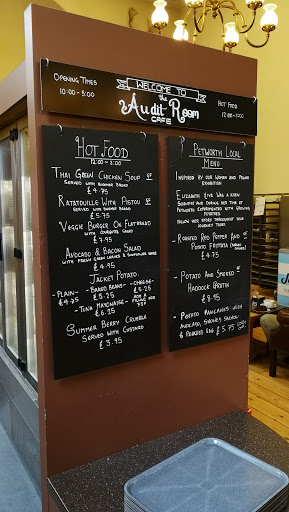 OPENING TIMES
10:00 - 5:00
WELCOME TO
the
Audit Room
CAFE
HOT FOOD
12:00 - 3:00
HOT FOOD
12:00 - 3:00
THAI GREEN CHICKEN SOUP GF
SERVED WITH BOOMER BREAD
£4.75
RATATOUILLE WITH PISTOU GF
SERVED WITH BOOMER BREAD
£5.75
VEGGIE BURGER ON FLATBREAD
WITH COURGETTE SALAD
£7.95
AVOCADO & BACON SALAD
WITH FRESH GREEN LEAVES & SUNFLOWER SEEDS
£4.95
JACKET POTATO
- PLAIN -
£4.75
- BAKED BEANS -
£5.25
- CHEESE -
£5.25
- TUNA MAYONAISE -
£6.25
ADD A EXTRA
FILLER FOR
75P
SUMMER BERRY CRUMBLE
SERVED WITH CUSTARD
£3.95
PETWORTH LOCAL
MENU
INSPIRED BY OUR WOMEN AND POWER
EXHIBITION
ELIZABETH ILIVE WAS A KEEN
SCIENTIST AND DURING HER TIME AT
PETWORTH EXPERIMENTED WITH GROWING
POTATOES.
FOLLOW HER STORY THROUGHOUT YOUR
JOURNEY TODAY.
- ROASTED RED PEPPER AND GF
POTATO FRITTATA
£4.75
- POTATO AND SMOKED GF
HADDOCK GRATIN
£8.95
- POTATO PANCAKES WITH
AVOCADO, SMOKED SALMON
& POACHED EGG £5.75